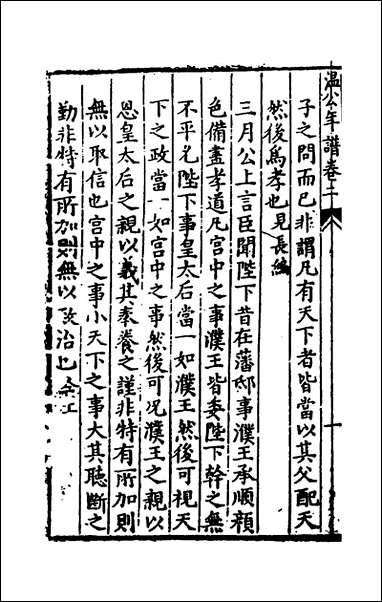 溫公年譜卷二
子之問而已非謂凡有天下者皆當以其父配天
然後為孝也見長編
三月公上言臣聞陛下昔在藩邸事濮王承順顏
色備盡孝道凡宮中之事濮王皆委陛下幹之無
不平允陛下事皇太后當一如濮王然後可視天
下之政當一如宮中之事然後可况濮王之親以
恩皇太后之親以義其奉養之謹非特有所加則
無以取信也宮中之事小天下之事大其聽斷之
勤非特有所加則無以致治也